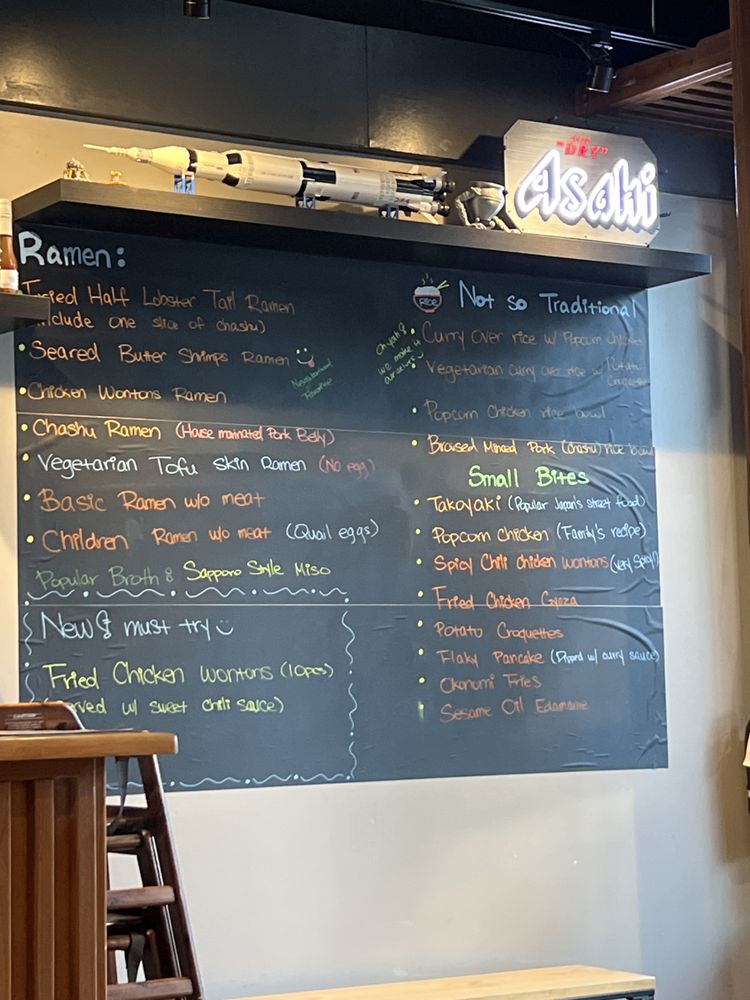 "DRY"
Asahi
Ramen:
Fried Half Lobster Tail Ramen
include one slice of chashu)
• Seared Butter Shrimps Ramen
Neighborhood
Favorite
• Chicken Wontons Ramen
• Chashu Ramen (House marinated Pork Belly)
• Vegetarian Tofu Skin Ramen (No egg)
• Basic Ramen w/o meat
• Children Ramen w/o meat (Quail eggs)
Popular Broth: Sapporo Style Miso
New & must try
Fried Chicken wontons (10pcs)
served w/ sweet chili sauce)
RICE
Not so Traditional
we make it
ourselves
• Curry over rice w/ Popcorn Chicken
Vegetarian curry over rice w/ Potato
Croquettes
• Popcorn Chicken rice bowl
• Braised Minced Pork (chashu) rice bowl
Small Bites
• Takoyaki (Popular Japan's street food)
• Popcorn Chicken (Family's recipe)
• Spicy Chili chicken wontons (very spicy!)
• Fried Chicken Gyoza
• Potato Croquettes
• Flaky Pancake (Dipped w/ curry sauce)
• Okonomi Fries
• Sesame Oil Edamame